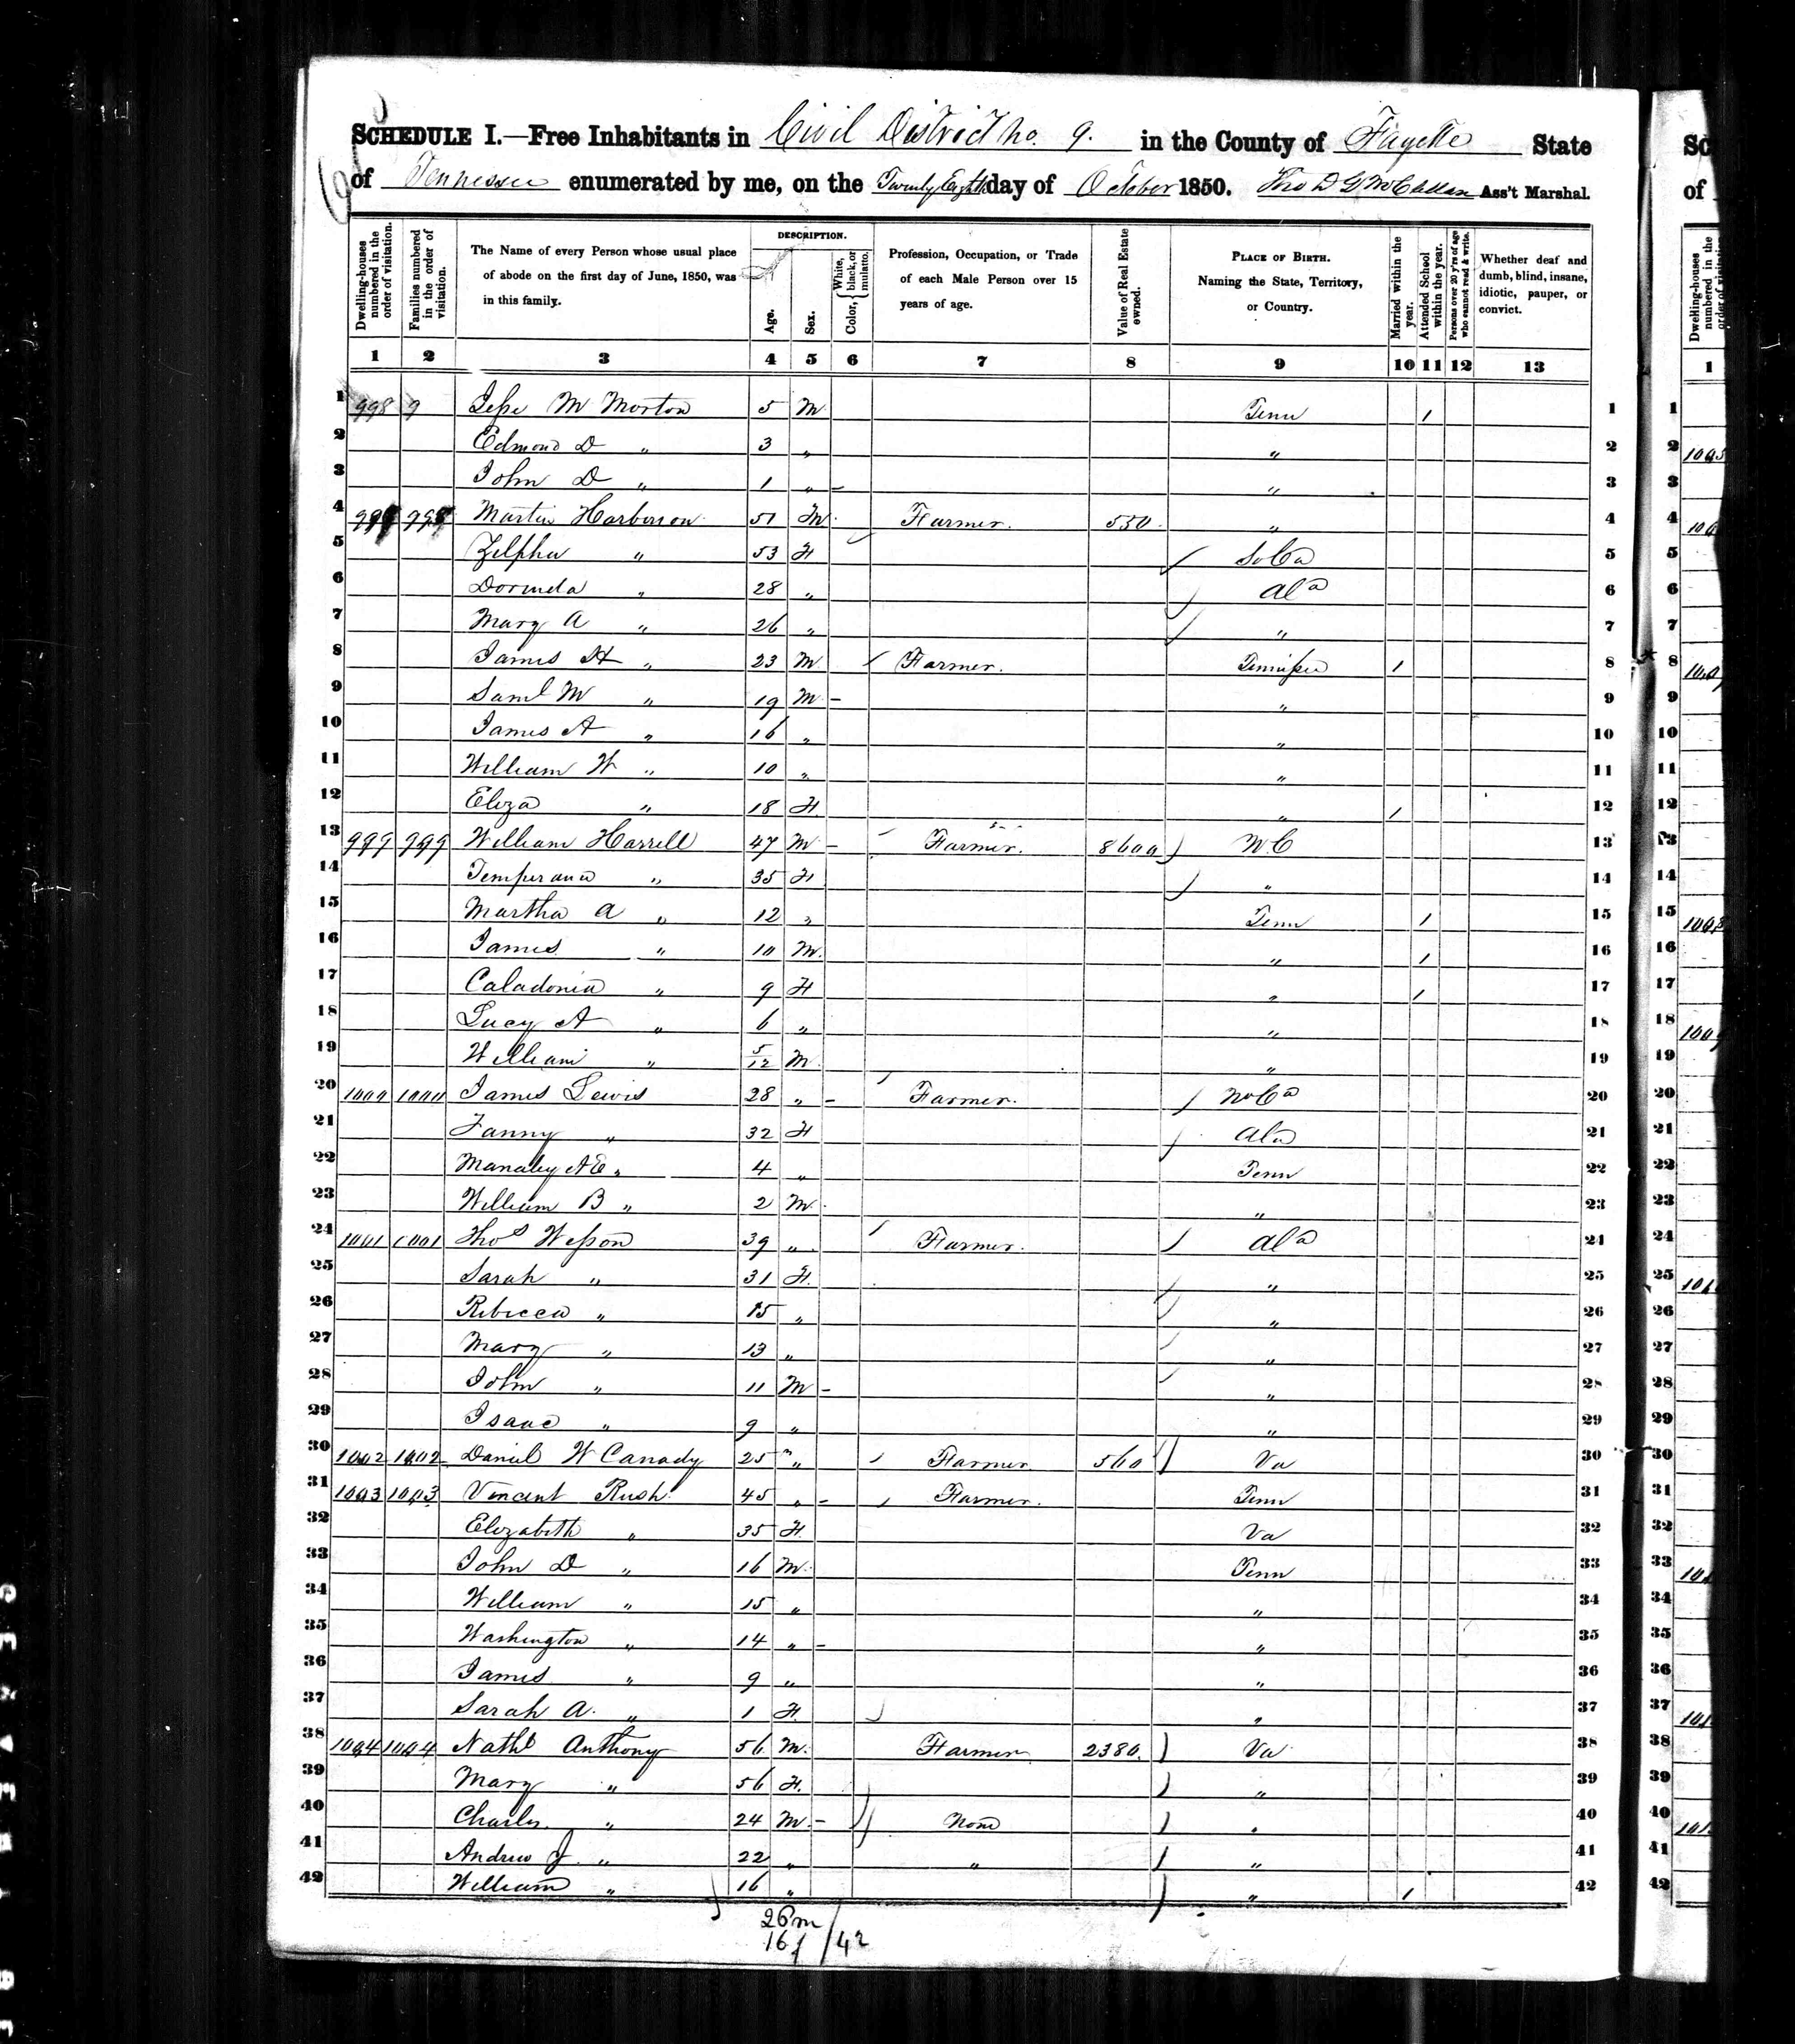 SCHEDULE I.—Free Inhabitants in Civil District No. 9. in the County of Fayette State
of Tennessee enumerated by me, on the Twenty Eighth day of October 1850. Ass't Marshal.
Dwelling-houses numbered in the order of visitation.
Families numbered in the order of visitation.
The Name of every Person whose usual place of abode on the first day of June, 1850, was in this family.
DESCRIPTION.
Age.
Sex.
Color, { White, black, or mulatto.
Profession, Occupation, or Trade of each Male Person over 15 years of age.
Value of Real Estate owned.
PLACE OF BIRTH. Naming the State, Territory, or Country.
Married within the year.
Attended School within the year.
Persons over 20 y'rs of age who cannot read & write.
Whether deaf and dumb, blind, insane, idiotic, pauper, or convict.
1 2 3 4 5 6 7 8 9 10 11 12 13
1 998 9 Jesse M Morton 5 M Tenn 1 1
2 Edmond D " 3 " " 2
3 John D " 1 " " 3
4 998 Martin Harberson 51 M Farmer. 550 " 4
5 Zilpha " 53 F So Ca 5
6 Dorinda " 28 " Ala 6
7 Mary A " 26 " " 7
8 James H " 23 M Farmer. Tennessee 1 8
9 Saml M " 19 M " 9
10 James A " 16 " " 10
11 William W " 10 " " 11
12 Eliza " 18 F " 1 12
13 999 999 William Harrell 47 M Farmer. 8600 N.C 13
14 Temperance " 35 F " 14
15 Martha A " 12 " Tenn 1 15
16 James " 10 M " 1 16
17 Caladonia " 9 F " 1 17
18 Lucy A " 6 " " 18
19 William " 5/12 M " 19
20 1000 1000 James Lewis 28 " Farmer. No Ca 20
21 Fanny " 32 F Ala 21
22 A E " 4 " Tenn 22
23 William B " 2 M " 23
24 1001 1001 Thos Wesson 39 " Farmer. Ala 24
25 Sarah " 31 F " 25
26 Rebecca " 15 " " 26
27 Mary " 13 " " 27
28 John " 11 M " 28
29 Isaac " 9 " " 29
30 1002 1002 Daniel W Canady 25 " Farmer 560 Va 30
31 1003 1003 Vincent Rush 45 " Farmer. Tenn 31
32 Elizabeth " 35 F Va 32
33 John D " 16 M Tenn 33
34 William " 15 " " 34
35 Washington " 14 " " 35
36 James " 9 " " 36
37 Sarah A. " 1 F " 37
38 1004 1004 Nathl Anthony 56 M Farmer 2380 Va 38
39 Mary " 56 F " 39
40 Charles " 24 M None " 40
41 Andrew J " 22 " " " 41
42 William " 16 " " 1 42
26 m
16 f / 42